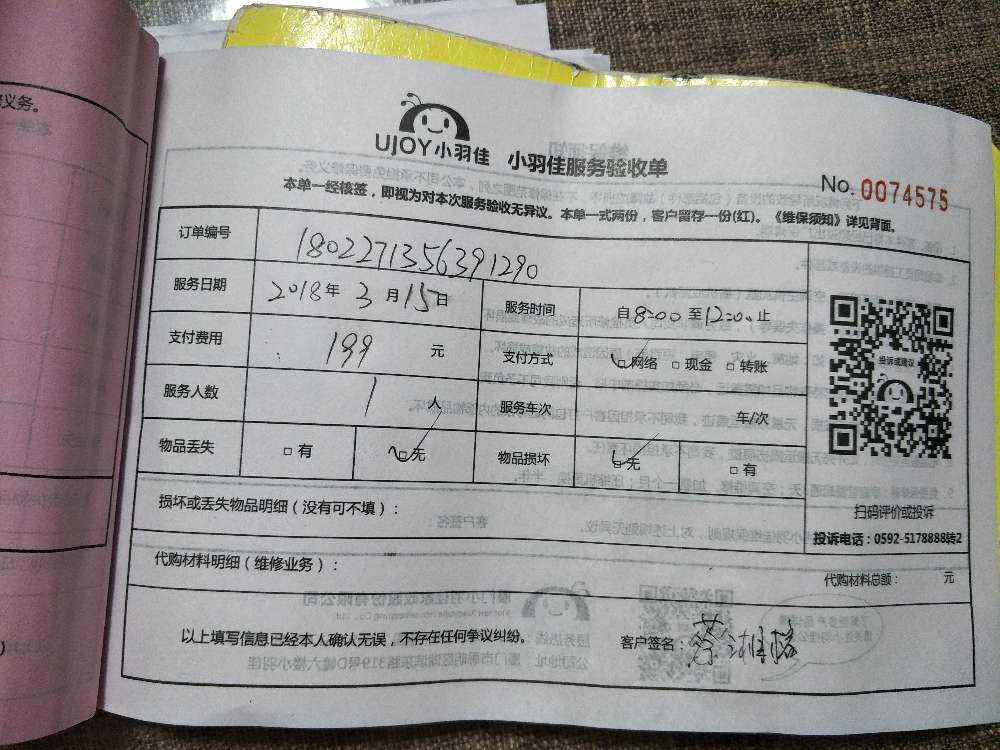 义务。
UJOY小羽佳 小羽佳服务验收单
No. 0074575
本单一经核签，即视为对本次服务验收无异议。本单一式两份，客户留存一份(红)。《维保须知》详见背面。
订单编号 1802271356391290
服务日期 2018年3月15日 服务时间 自8:00至12:00止
支付费用 199 元 支付方式 □网络 □现金 □转账
服务人数 1 人 服务车次 车/次
物品丢失 □有 □无 物品损坏 □无 □有
投诉或建议
扫码评价或投诉
投诉电话：0592-5178888转2
损坏或丢失物品明细（没有可不填）：
代购材料明细（维修业务）：
代购材料总额： 元
以上填写信息已经本人确认无误，不存在任何争议纠纷。 客户签名：